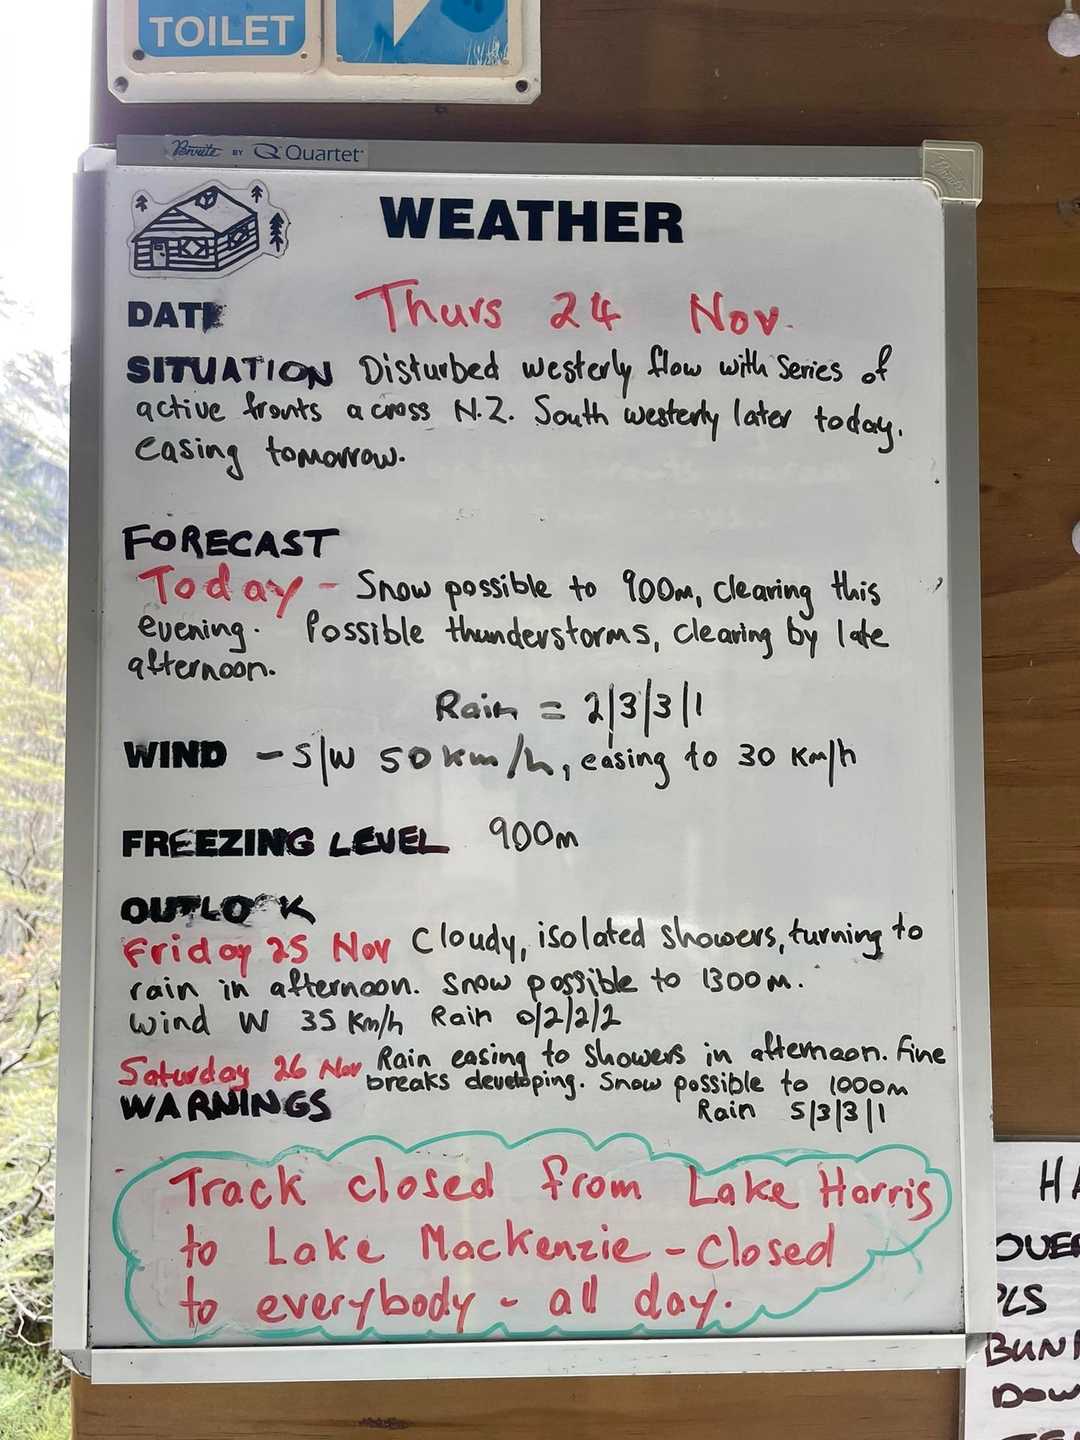 TOILET
Boone BY Quartet
WEATHER
DATE Thurs 24 Nov.
SITUATION Disturbed westerly flow with series of
active fronts across N.Z. South westerly later today.
easing tomorrow.
FORECAST
Today - Snow possible to 900m, clearing this
evening. Possible thunderstorms, clearing by late
afternoon.
Rain = 2/3/3/1
WIND - S/W 50 km/h, easing to 30 Km/h
FREEZING LEVEL 900m
OUTLOOK
Friday 25 Nov Cloudy, isolated showers, turning to
rain in afternoon. Snow possible to 1300m.
Wind W 35 Km/h Rain 0/2/2/2
Saturday 26 Nov Rain easing to showers in afternoon. Fine
breaks developing. Snow possible to 1000m
WARNINGS Rain 5/3/3/1
Track closed from Lake Harris
to Lake Mackenzie - Closed
to everybody - all day.
PLS